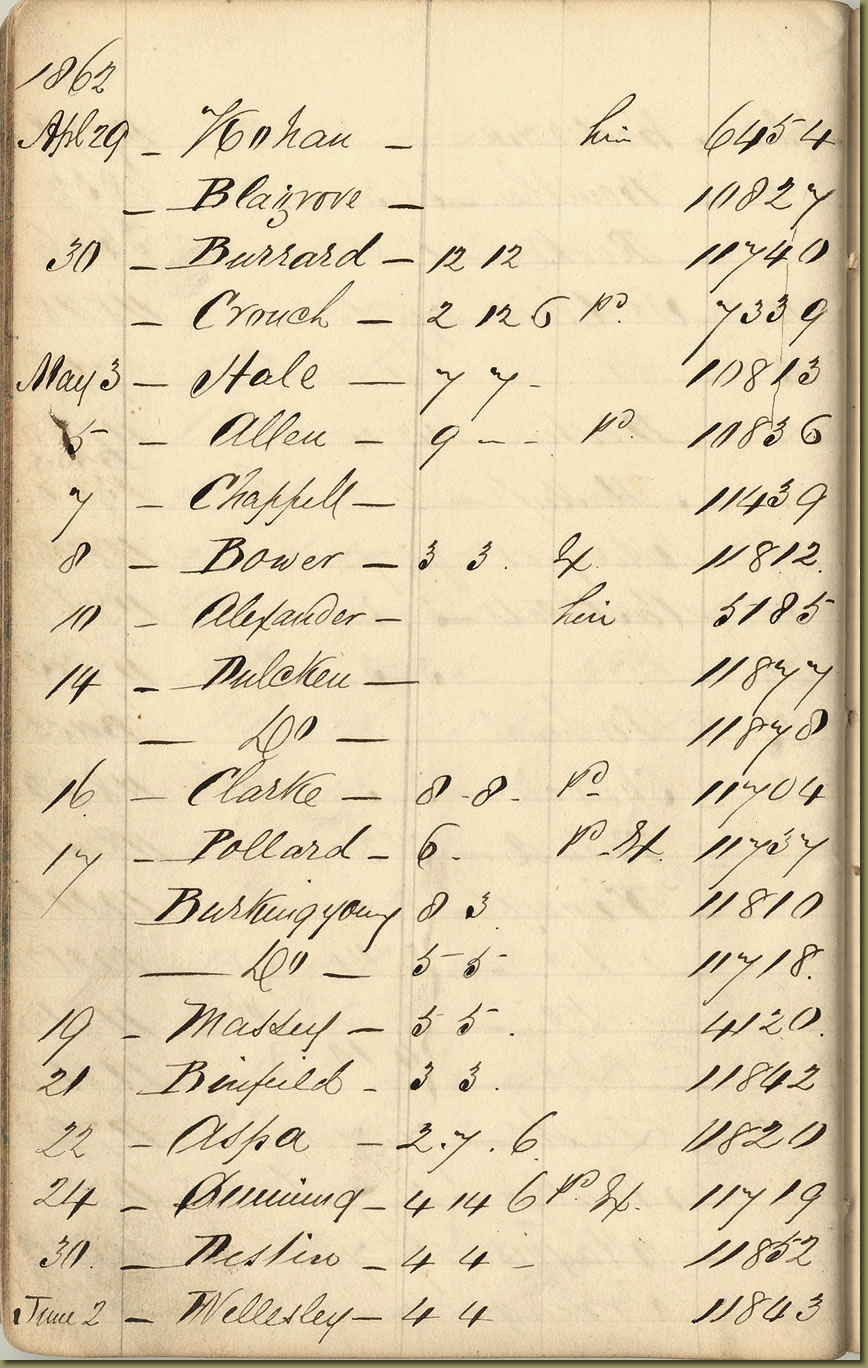 1862
Apl 29 - Kohan - hire 6454
- Blagrove - 10827
30 - Burrard - 12 12 11740
- Crouch - 2 12 6 Pd. 7339
May 3 - Hale - 7 7 - 10813
5 - Allen - 9 - - Pd. 10836
7 - Chappell - 11439
8 - Bower - 3 3. Ex. 11812.
10 - Alexander - hire 5185
14 - Dulcken - 11877
- Do - 11878
16. - Clarke - 8 - 8 - Pd 11704
17 - Pollard - 6. Pd. Ex. 11737
Burkingyoung 8 3 11810
- Do - 5 5 11718.
19 - Massey - 5 5. 4120.
21 - Binfield - 3 3. 11842
22 - Aspa - 2.7.6 11820
24 - 4 14 6 Pd. Ex. 11719
30. - Destin - 4 4 - 11852
June 2 - Wellesley - 4 4 11843